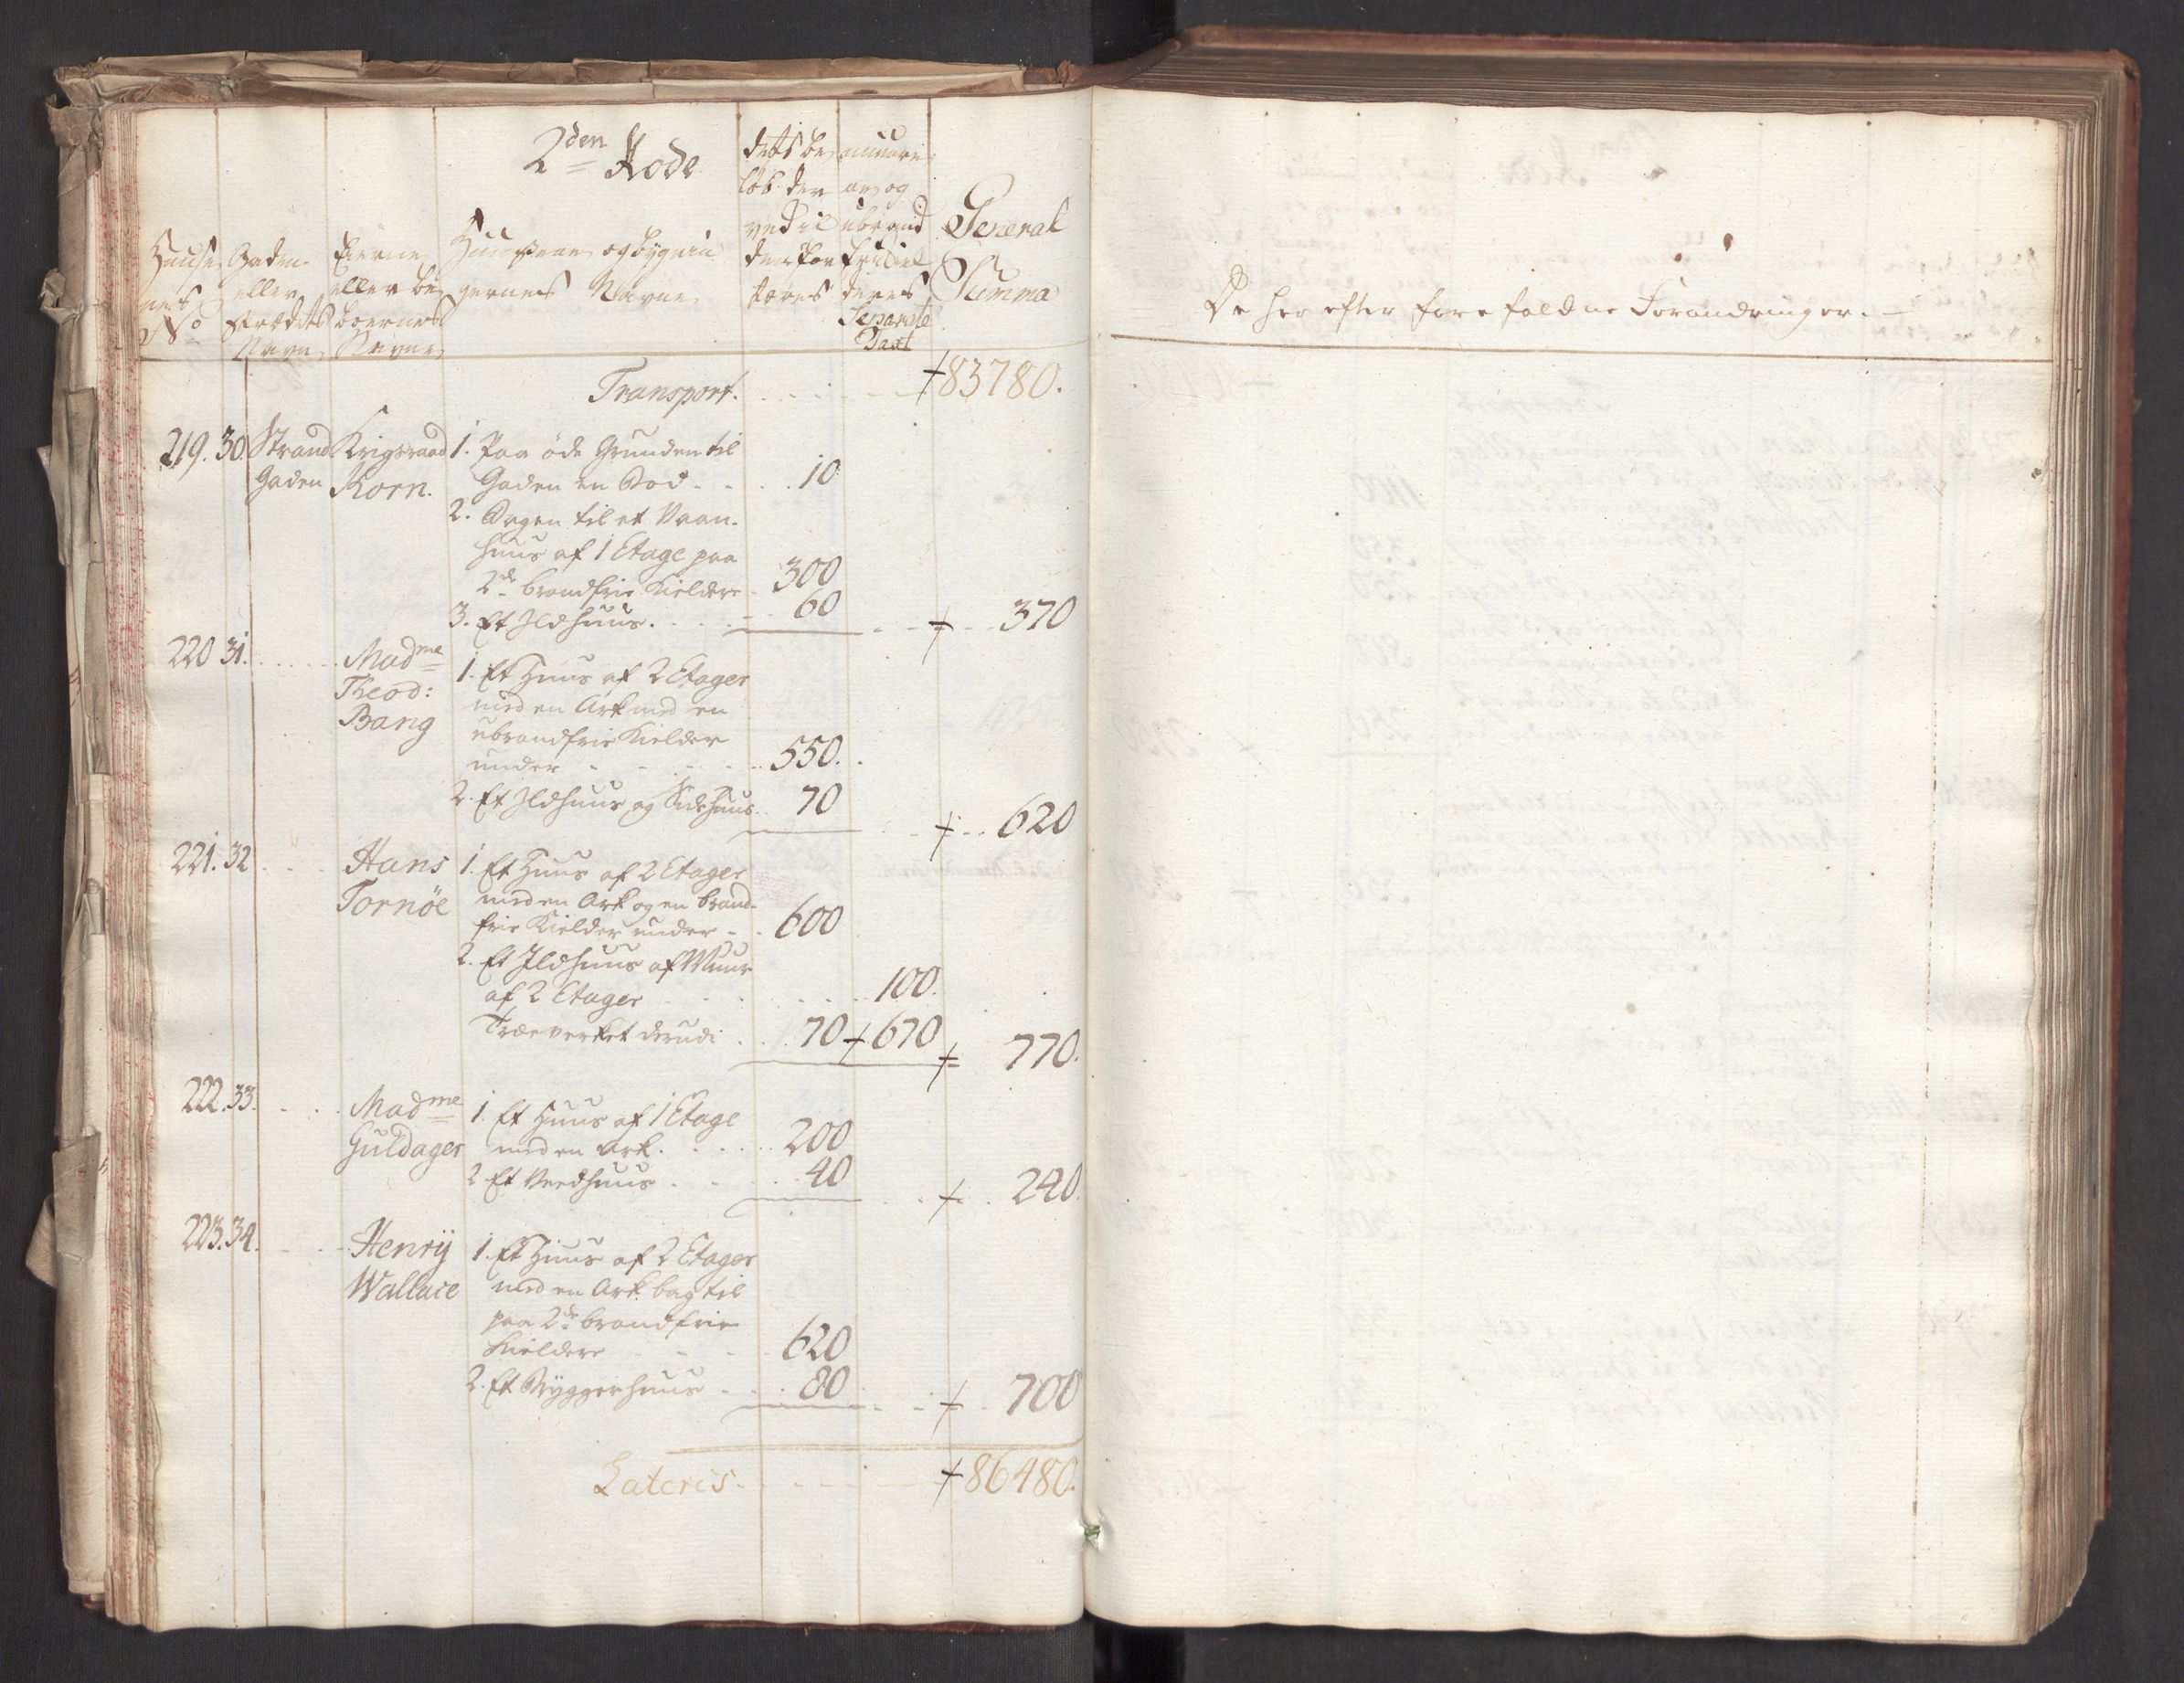 2den Rode
Husenes No
Gaden eller Strædets Navn
Eierne eller beboernes Navne
Huusene og bygningernes Navne
dets beløb der ved ildens fortæres
General Summa
Separate Taxt
Transport. 83780.
219. 30. Strand Krigsraad 1. Paa öde Grunden til
Gaden Korn. Gaden en Bod 10
2. Bagen til et Vaan-
huus af 1 Etage paa
2de brandfrie Kieldere 300
3. Et Ildhuus. 60 370
220 31. Madme 1. Et Huus af 2 Etager
Theod: med en Ark med en
Bang ubrandfrie Kielder
under 550.
2. Et Ildhuus og Sidehuus. 70 620
221. 32 Hans 1. Et Huus af 2 Etager
Tornöe med en Ark og en brand-
frie Kielder under 600
2. Et Ildhuus af Muur
af 2 Etager 100.
Træeverket derudi 70 670 770.
222. 33. Madme 1. Et Huus af 1 Etage
Guldager med en Ark. 200
2 Et Veedhuus 40 240.
223. 34. Henrÿ 1. Et Huus af 2 Etager
Wallace med en Ark bag til
paa 2de brandfrie
Kieldere 620
2. Et Bryggerhuus 80 700
Lateris 86480.
De her efter forefaldne Forandringer.